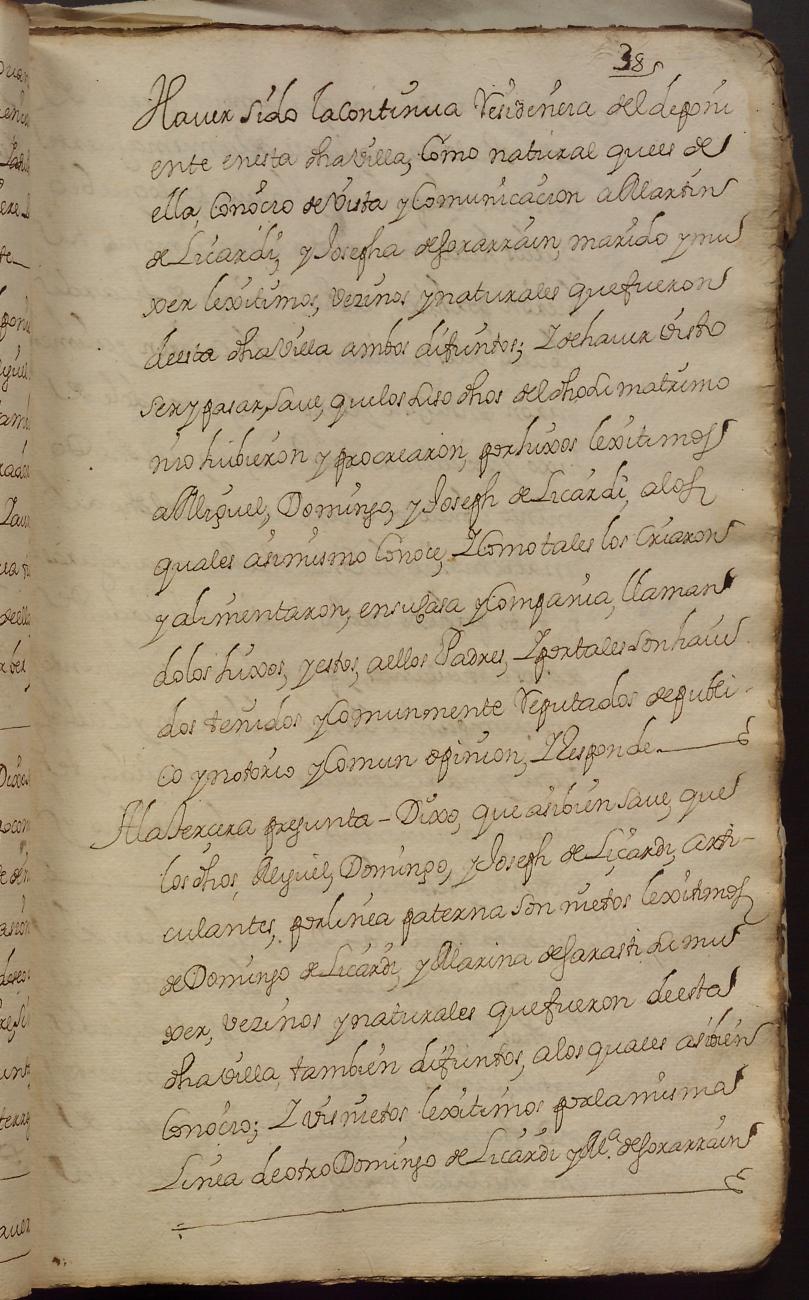 38
Haver sido la continua Residencia del deponi
ente en esta dha Villa, Como natural que es de
ella, Conocio de Vista y Comunicacion a Martin
de Licardi, y Josepha de Sorarrain, marido y mu
xer lexitimos, vezinos y naturales que fueron
de esta dha Villa ambos difuntos; Y de haver visto
ser y pasar, save, que los suso dhos del dho su matrimo
nio hubieron y procrearon, por hixos lexitimos
a Miguel, Domingo, y Joseph de Licardi, alos
quales asimismo Conoce, Y Como tales los Criaron
y alimentaron, en su Casa y Compania, llaman
dolos hixos, y estos, aellos Padres, Y por tales son havi
dos tenidos y Comunmente Reputados de publi-
co y notorio y Comun opinion, Y Responde
A la Tercera pregunta - Dixo, que asibien save, que
los dhos, Miguel, Domingo, y Joseph de Licardi, arti-
culantes, por linea paterna son nietos lexitimos
de Domingo de Licardi, y Marina de Garasti su mu
xer, vezinos y naturales que fueron de esta
dha Villa, tambien difuntos, alos quales asibien
Conocio; Y visnietos lexitimos por la misma
Linea de otro Domingo de Licardi y Ma. de Sorarrain